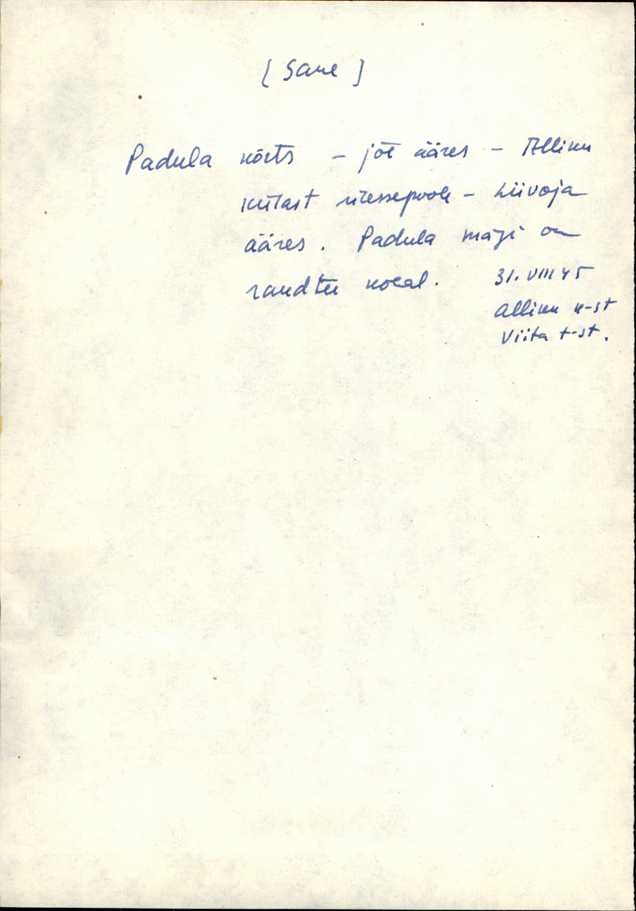 [Saue]
Padula kõrts - jõe ääres - Alliku
külast ülessepoole - Liivoja
ääres. Padula mägi on
raudtee kohal. 31. VIII 45
Alliku k-st
Viita t-st.